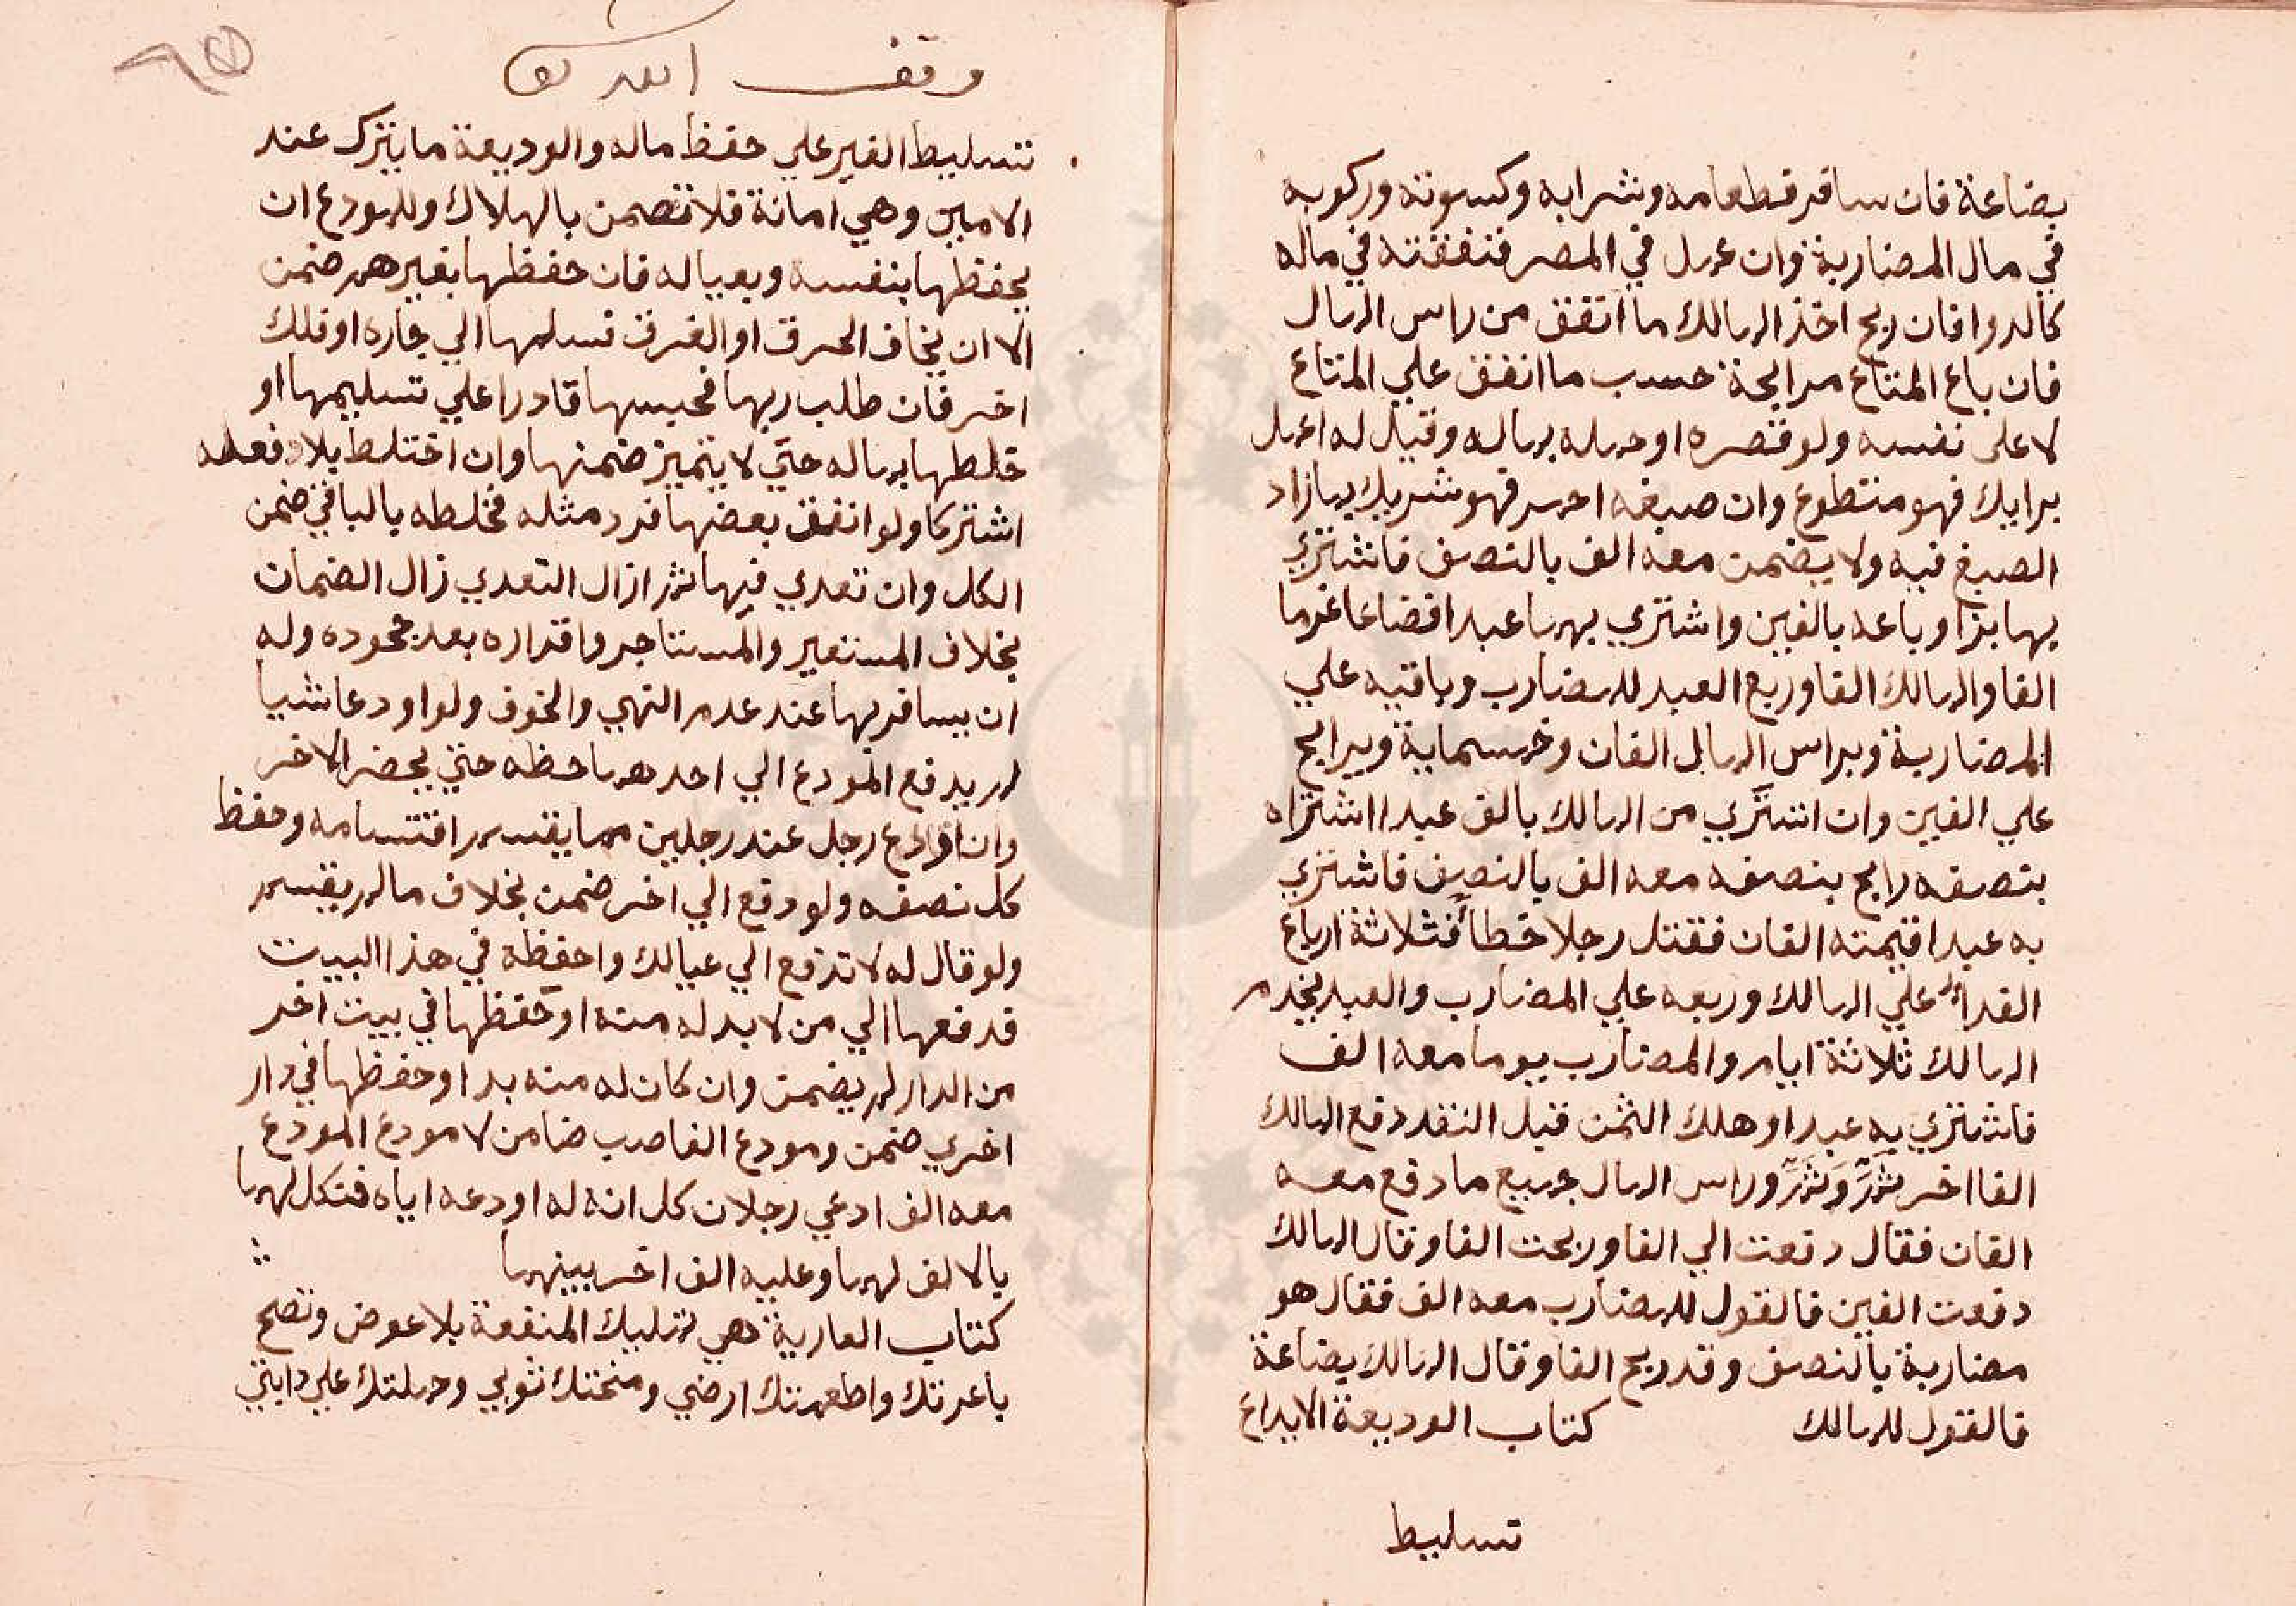 بضاعة فان سافر فطعامه وشرابه وكسوته وركوبه
في مال المضاربة وان عمل في المصر فنفقته في ماله
كالدوا فان ربح اخذ المالك ما انفق من راس المال
فان باع المتاع مرابحة حسب ما انفق علي المتاع
لا على نفسه ولو قصره او حمله بماله وقيل له اعمل
برايك فهو متطوع وان صبغه احمر فهو شريك بما زاد
الصبغ فيه ولا يضمن معه الف بالنصف فاشتري
بها بزا وباعه بالفين واشتري بهما عبدا فضاعا غرما
الفا والمالك الفا وربع العبد للمضارب وباقيه علي
المضاربة وبراس المال الفان وخمسماية ويرابح
علي الفين وان اشتري من المالك بالف عبدا اشتراه
بنصفه رابح بنصفه معه الف بالنصف فاشتري
به عبدا قيمته الفان فقتل رجلا خطأ فثلاثة ارباع
الفداء علي المالك وربعه علي المضارب والعبد يخدم
المالك ثلاثة ايام والمضارب يوما معه الف
فاشتري به عبدا وهلك الثمن قبل النقد دفع المالك
الفا اخر ثم وثم وراس المال جميع ما دفع معه
الفان فقال دفعت الي الفا وربحت الفا وقال المالك
دفعت الفين فالقول للمضارب معه الف فقال هو
مضاربة بالنصف وقد ربح الفا وقال المالك بضاعة
فالقول للمالك كتاب الوديعة الايداع
تسليط
وقف لله تعا
تسليط الغير علي حفظ ماله والوديعة ما يترك عند
الامين وهي امانة فلا تضمن بالهلاك وللمودع ان
يحفظها بنفسه وبعياله فان حفظها بغيرهم ضمن
الا ان يخاف الحرق او الغرق فسلمها الي جاره او فلك
اخر فان طلب ربها فحبسها قادرا علي تسليمها او
خلطها بماله حتي لا يتميز ضمنها وان اختلط بلا فعله
اشتركا ولو انفق بعضها فرد مثله فخلطه بالباقي ضمن
الكل وان تعدي فيها ثم ازال التعدي زال الضمان
بخلاف المستعير والمستاجر واقراره بعد جحوده وله
ان يسافر بها عند عدم النهي والخوف ولو اودعا شيا
لم يدفع المودع الي احدهما حظه حتي يحضر الاخر
وان اودع رجل عند رجلين مما يقسم اقتسامه وحفظ
كل نصفه ولو دفع الي اخر ضمن بخلاف ما لم يقسم
ولو قال له لا تدفع الي عيالك واحفظه في هذا البيت
فدفعها الي من لا بد له منه او حفظها في بيت اخر
من الدار لم يضمن وان كان له منه بد او حفظها في دار
اخري ضمن ومودع الغاصب ضامن لا مودع المودع
معه الف ادعي رجلان كل انه له اودعه اياه فنكل لهما
بالالف لهما وعليه الف اخر بينهما
كتاب العارية هي تمليك المنفعة بلا عوض وتصح
باعرتك واطعمتك ارضي ومنحتك ثوبي وحملتك علي دابتي